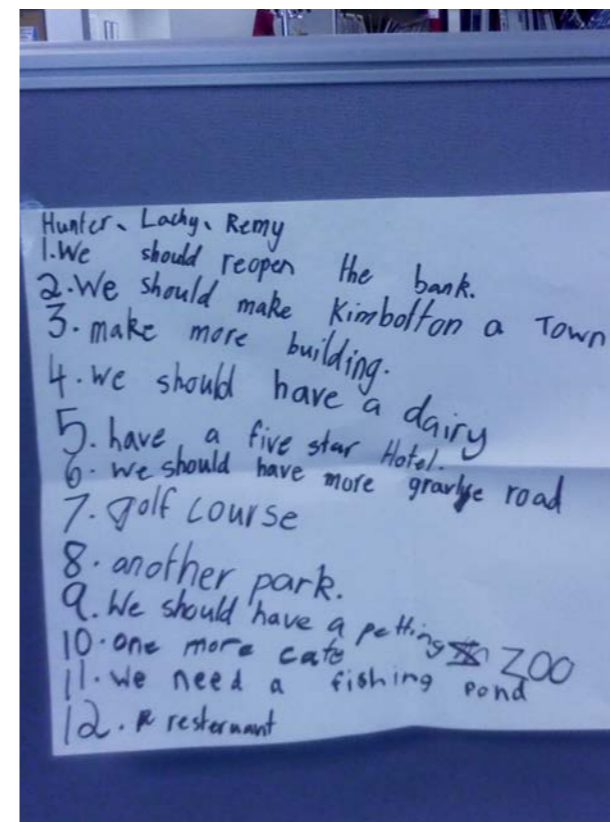 Hunter、Lachy、Remy
1.We should reopen the bank.
2.We should make Kimbolton a Town
3. make more building.
4. we should have a dairy
5. have a five star Hotel.
6. we should have more gravlye road
7. golf course
8. another park.
9. We should have a petting ZOO
10. one more cafe
11. we need a fishing pond
12. resternant